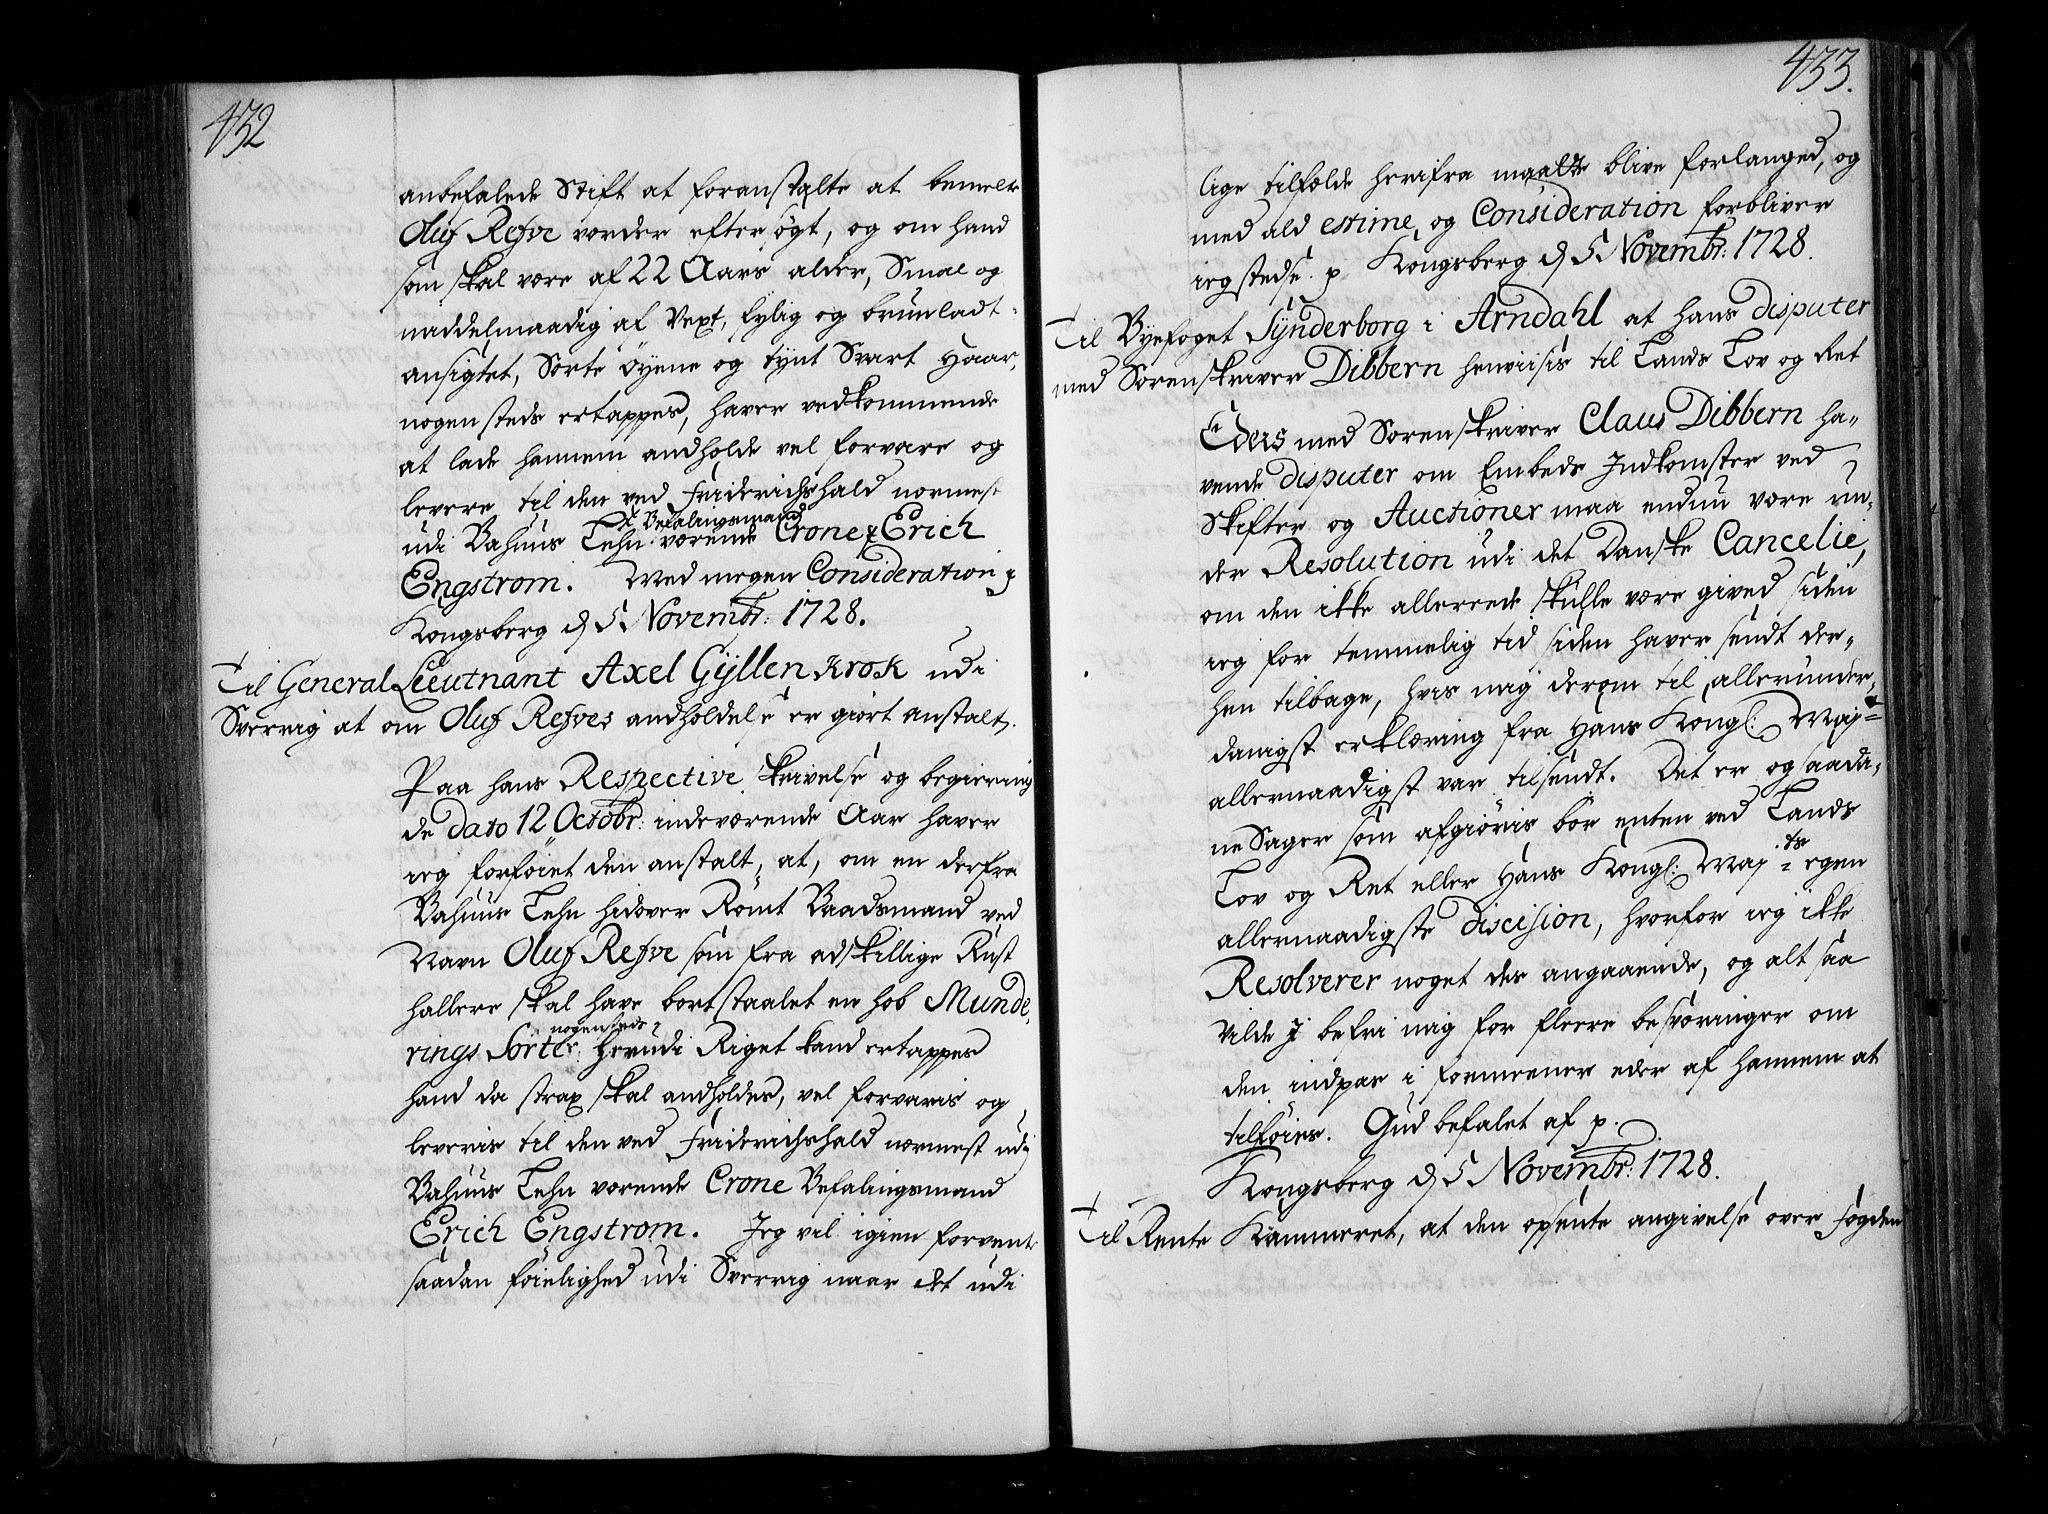 432
anbefalede Stift at foranstalte at bemelte
Oluf Refve vorder eftersøgt, og om hand
som skal være af 22 Aars alder, Smal og
middelmaadig af Vext, fylig og brunladt
ansigtet, Sorte Öyene og tynt Svart Haar,
nogensteds ertappes, haver vedkommende
at lade hannem andholde vel forvare og
levere til den ved Friderichshald nærmest
udi Bahuus Lehn værende Crone Befalingsmand Erich
Engstrom. Med megen Consideration p
Kongsberg d 5 Novembr: 1728.
Til General Lieutnant Axel Gyllen Krok udi
Sverrig at om Oluf Refves andholdelse er giort anstalt.
Paa hans Respective skrivelse og begiering
de dato 12 Octobr: indeværende Aar haver
ieg forföiet den anstalt, at, om en derfra
Bahuus Lehn hidover Römt Baadsmand ved
Navn Oluf Refve som fra adskillige Rust
hallere skal have bortstaalet en hob Munde
rings Sorter nogensteds herudi Riget kand ertappes
hand da strax skal andholdes, vel forvaris og
leveris til den ved Friderichshald nærmest udj
Bahuus Lehn værende Crone Befalingsmand
Erich Engstrom. Jeg vil igien forvente
saadan föielighed udi Sverrig naar det udi
433.
lige tilfælde herifra maatte blive forlanged, og
med ald estime, og Consideration forbliver
ieg stedse p Kongsberg d 5 Novembr: 1728.
Til Byefoget Synderborg i Arndahl at hans disputer
med Sorenskriver Dibbern henviisis til Lands Lov og Ret
Eders med Sorenskriver Claus Dibbern ha-
vende disputer om Embeds Indkomster ved
Skifter og Auctioner maa endnu være un-
der Resolution udi det Danske Cancelie,
om den ikke allerrede skulle være gived siden
ieg for temmelig tid siden haver sendt der-
hen tilbage, hvis mig derom til allerunder-
danigst erklæring fra Hans Kongl: Maj:
allernaadigst var tilsendt. Det er og saada-
ne Sager som afgiöris bör enten ved Lands
Lov og Ret eller Hans Kongl: Maj:ts egen
allernaadigste Discision, hvorfor ieg ikke
Resolverer noget des angaaende, og alt saa
vilde I befri mig for fleere besværinger om
den indpas i formeener eder af hannem at
tilföies. Gud befalet af p.
Kongsberg d 5 Novembr: 1728.
Til Rente Kammeret, at den opsente angivelse over fogden